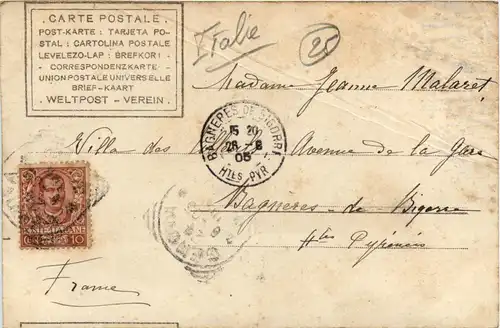 CARTE POSTALE.
POST-KARTE : TARJETA PO-
STAL : CARTOLINA POSTALE
LEVELEZO-LAP : BREFKORT :
- CORRESPONDENZKARTE -
UNION POSTALE UNIVERSELLE
BRIEF-KAART
. WELTPOST - VEREIN .
Italie
25
Madame Jeanne Malaret
BAGNÈRES DE BIGORRE
15 20
26 - 8
05
HTES PYR.
Villa des Avenue de la Gare
Bagnères - de - Bigorre
Htes Pyrénées
10
France